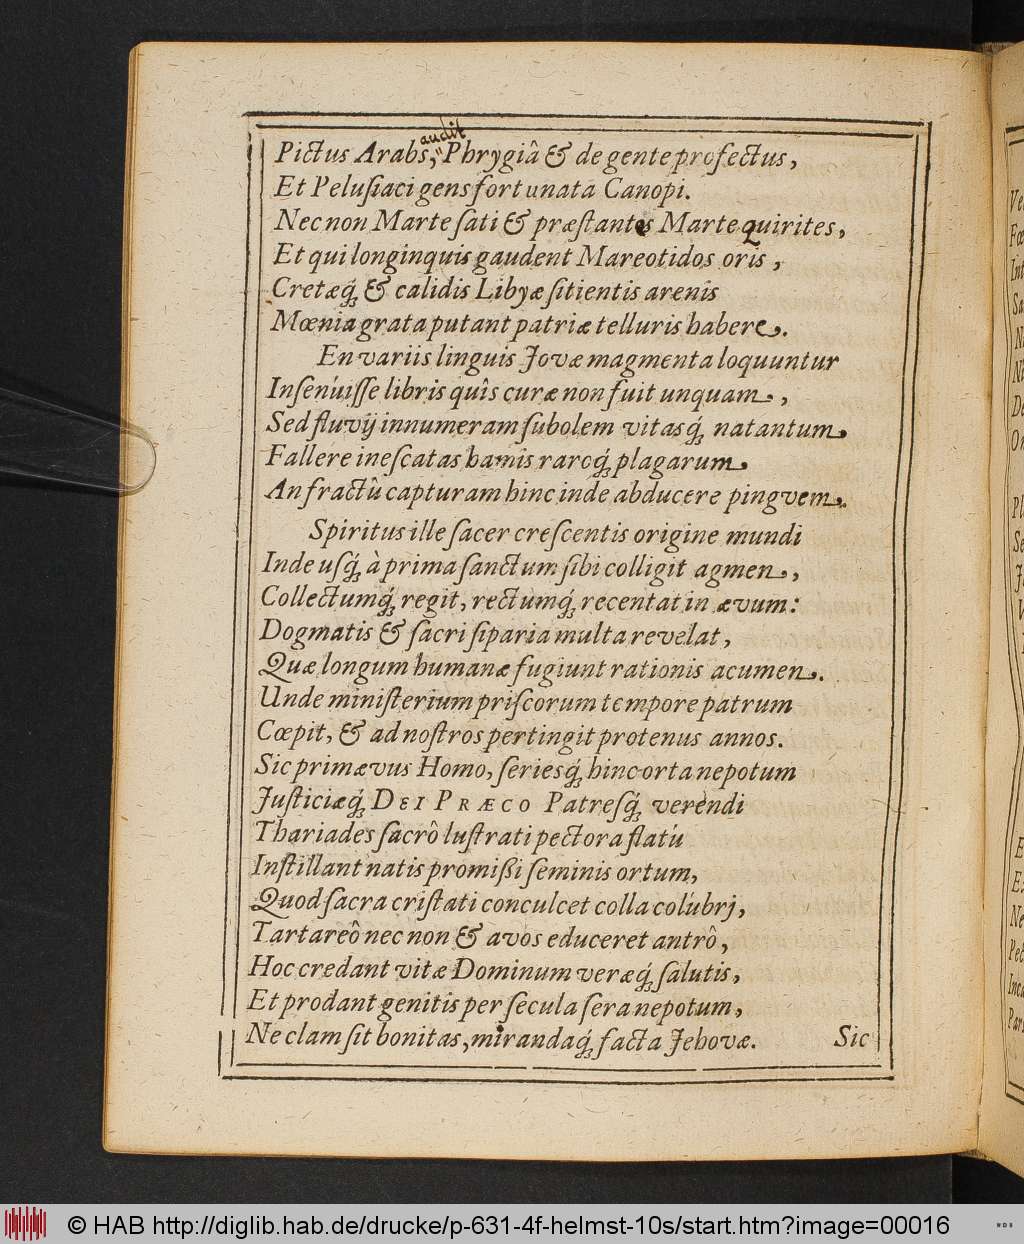 audit
Pictus Arabs, Phrygiâ & de gente profectus,
Et Peluſiaci gens fortunata Canopi.
Nec non Marte ſati & præſtantes Marte Quirites,
Et qui longinquis gaudent Mareotidos oris,
Cretæq́; & calidis Libyæ ſitientis arenis
Mœnia grata putant patriæ telluris habere.
En variis linguis Jovæ magmenta loquuntur
Inſenúiſſe libris quîs curæ non fuit unquam,
Sed fluvij innumeram ſubolem vitasq́; natantum,
Fallere ineſcatas hamis raroq́; plagarum,
Anfractû capturam hinc inde abducere pingvem,.
Spiritus ille ſacer creſcentis origine mundi
Inde uſq́; à prima ſanctum ſibi colligit agmen,
Collectumq́; regit, rectumq́; recentat in ævum:
Dogmatis & ſacri ſiparia multa revelat,
Quæ longum humanæ fugiunt rationis acumen.
Unde miniſterium priſcorum tempore patrum
Cœpit, & ad noſtros pertingit protenus annos.
Sic primævus Homo, ſeriesq́; hinc orta nepotum
Juſticiæq́; DEI PRÆCO Patresq́; verendi
Thariades ſacrô luſtrati pectora flatú
Inſtillant natis promißi ſeminis ortum,
Quod ſacra criſtati conculcet colla colúbrj,
Tartareô nec non & avos educeret antrô,
Hoc credant vitæ Dominum veræq́; ſalutis,
Et prodant genitis per ſecula ſera nepotum,
Ne clam ſit bonitas, mirandaq́; facta Jehovæ.
Sic
© HAB http://diglib.hab.de/drucke/p-631-4f-helmst-10s/start.htm?image=00016